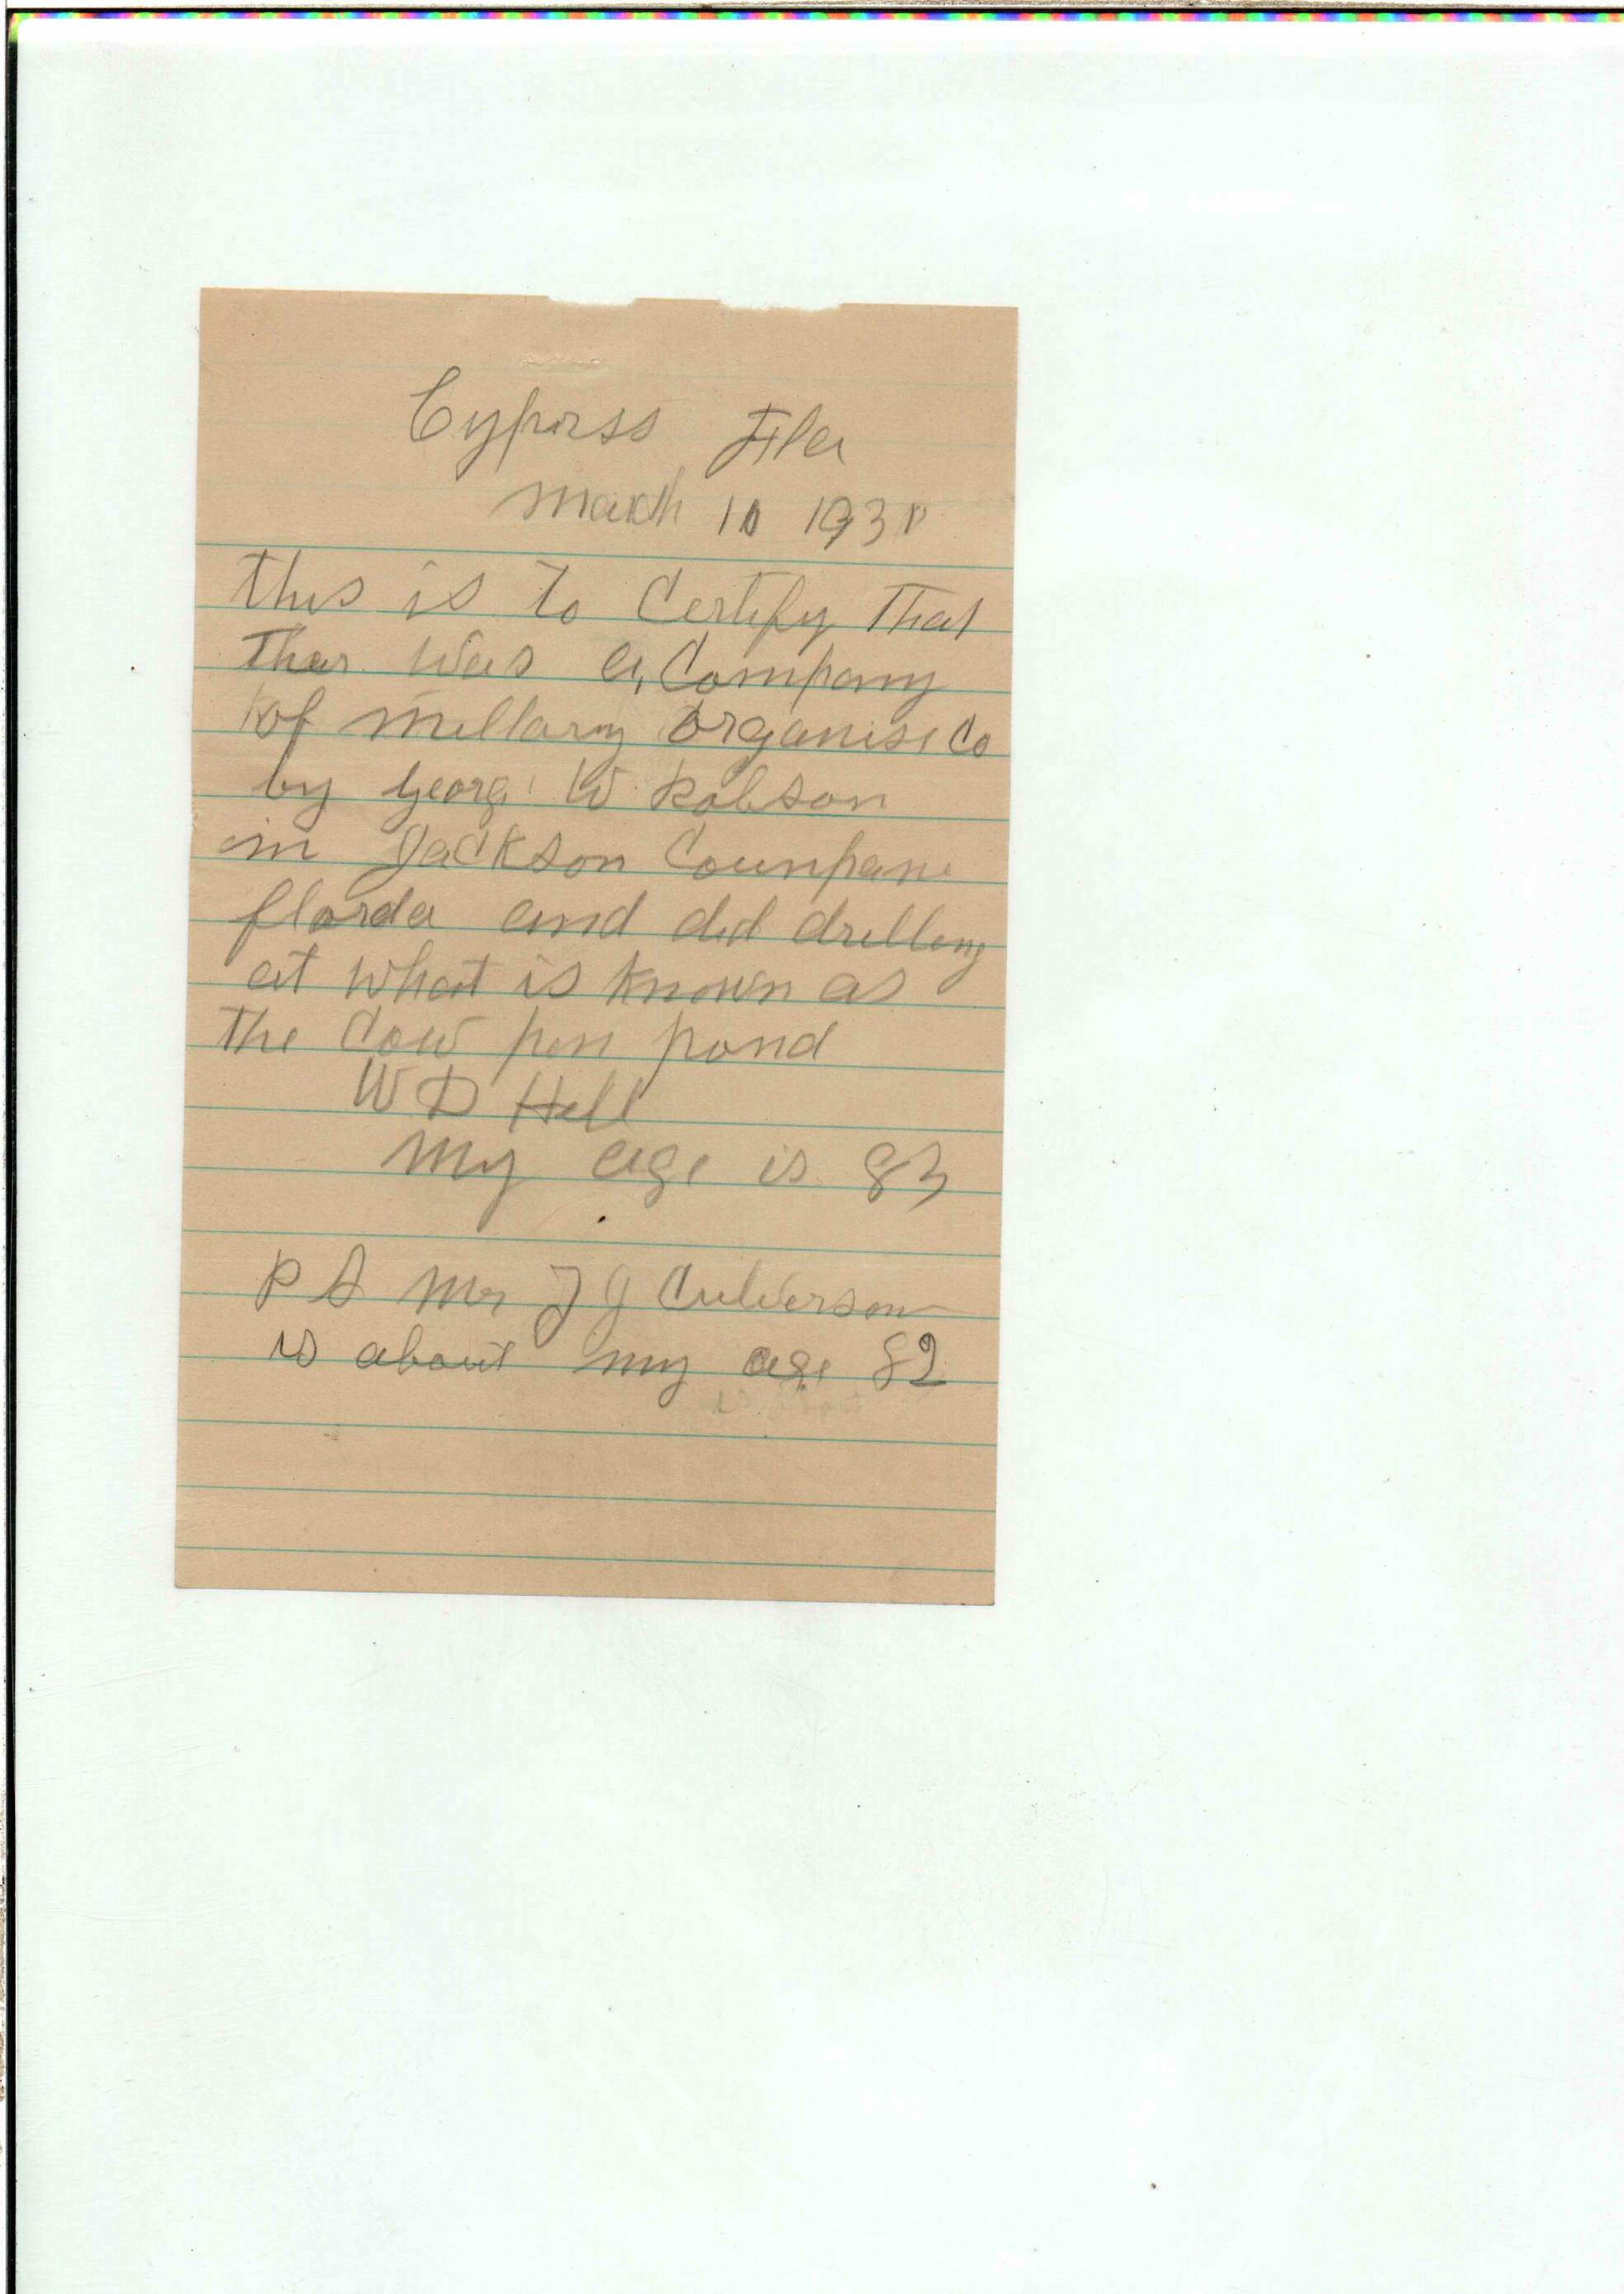 Cyprss Fla
March 10 193
this is to Certify That
Ther was a Company
of millary organise Co
by georg W Robson
in Jackson Counpane
florda and did drilling
at what is known as
The Cow pen pond
W D Hall
My age is 83
P S Mr J J Culverson
is about my age 82